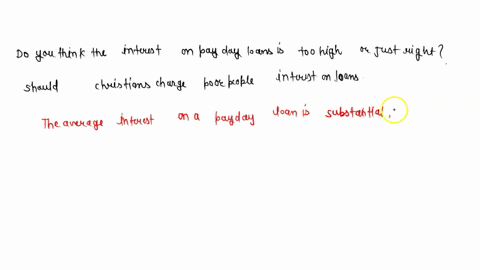 Do you think the interest on pay day loans is too high or just right?
should christians charge poor people interest on loans
The average interest on a payday loan is substantial,